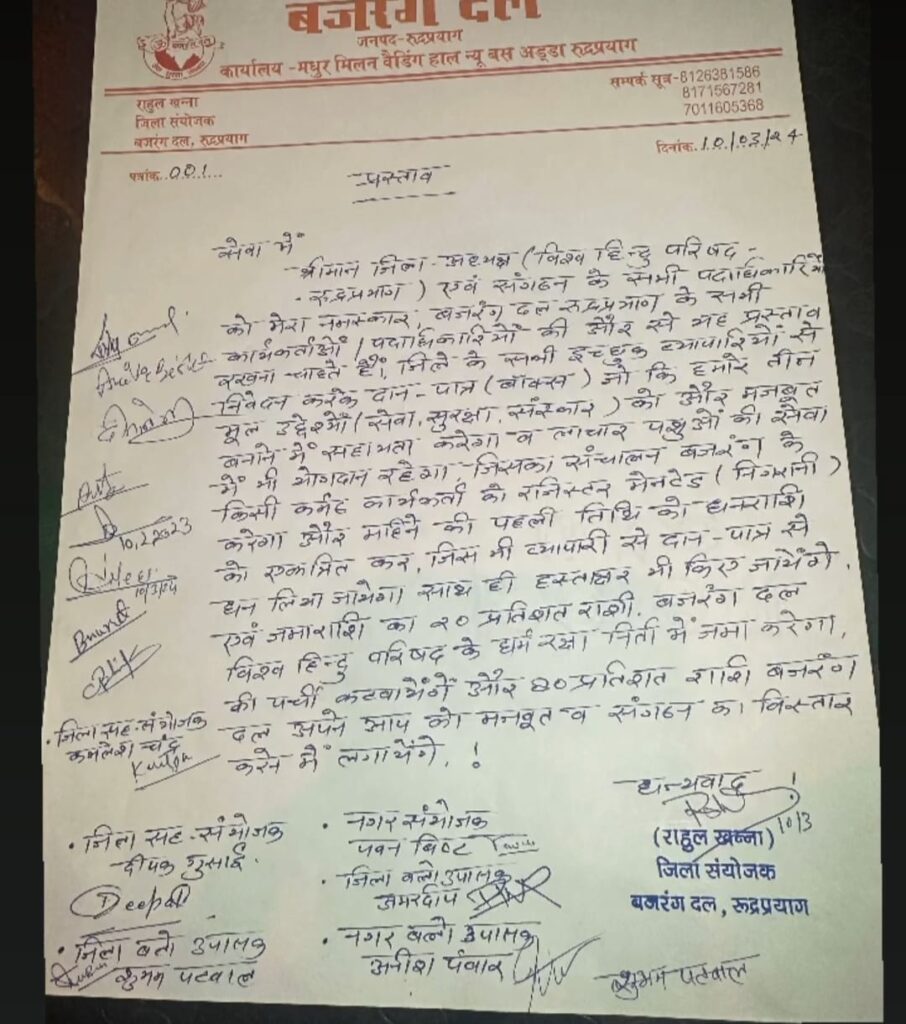 बजरंग दल
जनपद-रुद्रप्रयाग
कार्यालय -मधुर मिलन वैडिंग हाल न्यू बस अड्डा रुद्रप्रयाग
सम्पर्क सूत्र-8126381586
8171567281
7011605368
राहुल खन्ना
जिला संयोजक
बजरंग दल, रुद्रप्रयाग
पत्रांक..001...
दिनांक.10/03/24
प्रस्ताव
सेवा में
श्रीमान जिला-अध्यक्ष (विश्व हिन्दु परिषद-
रुद्रप्रयाग) एवं संगठन के सभी पदाधिकारियों
को मेरा नमस्कार, बजरंग दल रुद्रप्रयाग के सभी
कार्यकर्ताओं / पदाधिकारियों की और से यह प्रस्ताव
रखना चाहते हैं। जिले के सभी इच्छुक व्यापारियों से
निवेदन करके दान-पात्र (बॉक्स) जो कि हमारे तीन
मूल उद्देश्यों (सेवा, सुरक्षा, संस्कार) को और मजबूत
बनाने में सहायता करेगा व लाचार पशुओं की सेवा
में भी योगदान रहेगा, जिसका संचालन बजरंग के
किसी कर्मठ कार्यकर्ता को रजिस्टर मेनटेड (निगरानी)
करेगा और महिने की पहली तिथि को धनराशि
को एकत्रित कर, जिस भी व्यापारी से दान-पात्र से
धन लिया जायेगा साथ ही हस्ताक्षर भी किए जायेंगे,
एवं जमाराशि का २० प्रतिशत राशी, बजरंग दल
विश्व हिन्दु परिषद के धर्म रक्षा निती में जमा करेगा,
की पर्ची कटवायेंगें और ८० प्रतिशत राशि बजरंग
दल अपने आप को मजबूत व संगठन का विस्तार
करने में लगायेंगे, !
10,2,2023
10/3/24
जिला सह-संयोजक
कमलेश चंद्र
धन्यवाद !
10/3
(राहुल खन्ना)
जिला संयोजक
बजरंग दल, रुद्रप्रयाग
• जिला सह-संयोजक
दीपक गुसाई.
Deepak
• नगर संयोजक
पवन बिष्ट
• जिला बलो उपासक
अमरदीप
• जिला बलो उपासक
शुभम पटवाल
• नगर बलो उपासक
अनीश पंवार
शुभम पटवाल